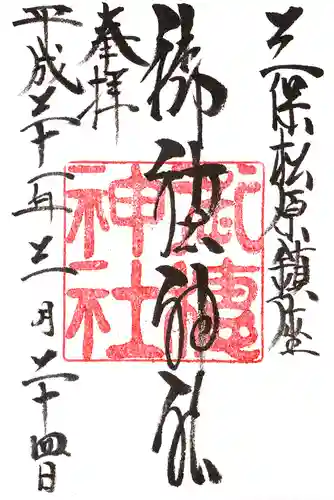 三保松原鎮座
御穂神社
奉拝
平成二十一年十二月二十四日
御穂神社